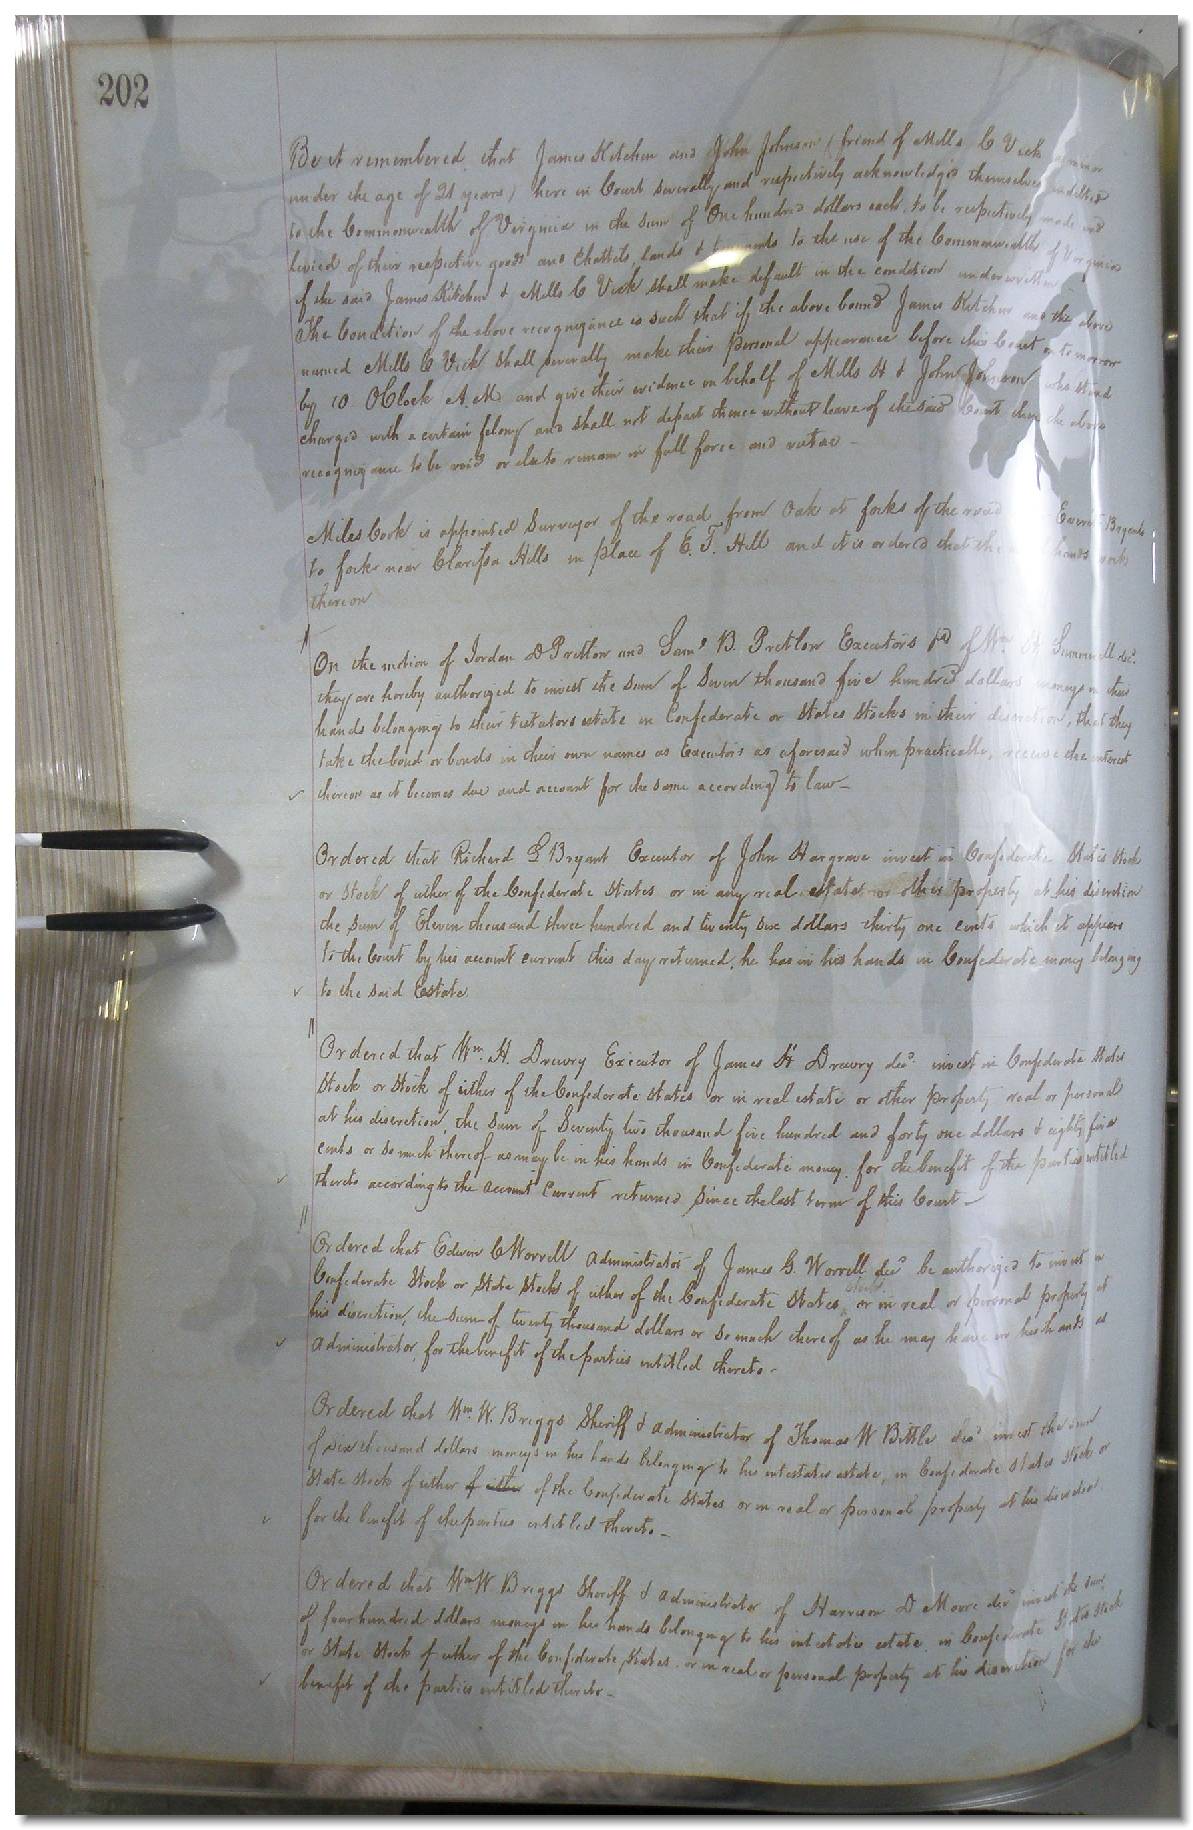 202
Be it remembered that James Kitchen and John Johnson (friend of Mills C Vick a minor
under the age of 21 years) here in Court severally and respectively acknowledges themselves indebted
to the Commonwealth of Virginia in the sum of One hundred dollars each, to be respectively made and
levied of their respective goods and chattels, lands & tenements to the use of the Commonwealth of Virginia
if the said James Kitchen & Mills C Vick shall make default in the condition underwritten
The Condition of the above recognizance is such that if the above bound James Kitchen and the above
named Mills C Vick shall severally make their personal appearance before this Court on tomorrow
by 10 OClock A.M. and give their evidence on behalf of Mills H & John Johnson who stand
charged with a certain felony and shall not depart thence without leave of the said Court then the above
recognizance to be void or else to remain in full force and virtue -
Miles Cook is appointed Surveyor of the road from Oak at forks of the road Everet Bryants
to forks near Clarissa Hills in place of E. T. Hill and it is ordered that the hands work
thereon
On the motion of Jordan D Pretlow and Saml B. Pretlow Executors &c of Wm H. Summerell dec.
they are hereby authorized to invest the sum of Seven thousand five hundred dollars moneys in their
hands belonging to their testators estate in Confederate or States Stocks in their discretion, that they
take the bond or bonds in their own names as Executors as aforesaid when practicable, receive the interest
✓ thereon as it becomes due and account for the same according to law -
Ordered that Richard L Bryant Executor of John Hargrave invest in Confederate States Stock
or Stock of either of the Confederate States or in any real estate or other property at his discretion
the sum of Eleven thousand three hundred and twenty six dollars thirty one cents which it appears
to the Court by his account current this day returned, he has in his hands in Confederate money belonging
✓ to the said Estate
Ordered that Wm. H. Drewry Executor of James H Drewry decd invest in Confederate States
Stock or Stock of either of the Confederate States or in real estate or other property real or personal
at his discretion, the sum of Seventy two thousand five hundred and forty one dollars & eighty five
cents or so much thereof as may be in his hands in Confederate money for the benefit of the parties entitled
✓ thereto according to the account current returned since the last term of this Court -
Ordered that Edwin C Worrell administrator of James G. Worrell decd be authorized to invest in
Confederate Stock or State Stocks of either of the Confederate States, or in real or personal property at
his discretion, the sum of twenty thousand dollars or so much thereof as he may have in his hands as
✓ administrator, for the benefit of the parties entitled thereto -
Ordered that Wm W. Briggs Sheriff & administrator of Thomas W Bittle decd invest the sum
of six thousand dollars moneys in his hands belonging to his intestates estate, in Confederate States Stock or
State stock of either of either of the Confederate States or in real or personal property at his discretion
✓ for the benefit of the parties entitled thereto -
Ordered that Wm W Briggs Sheriff & administrator of Harrison D Moore decd invest the sum
of four hundred dollars moneys in his hands belonging to his intestates estate in Confederate States Stock
or State Stock of either of the Confederate States or in real or personal property at his discretion for the
✓ benefit of the parties entitled thereto -